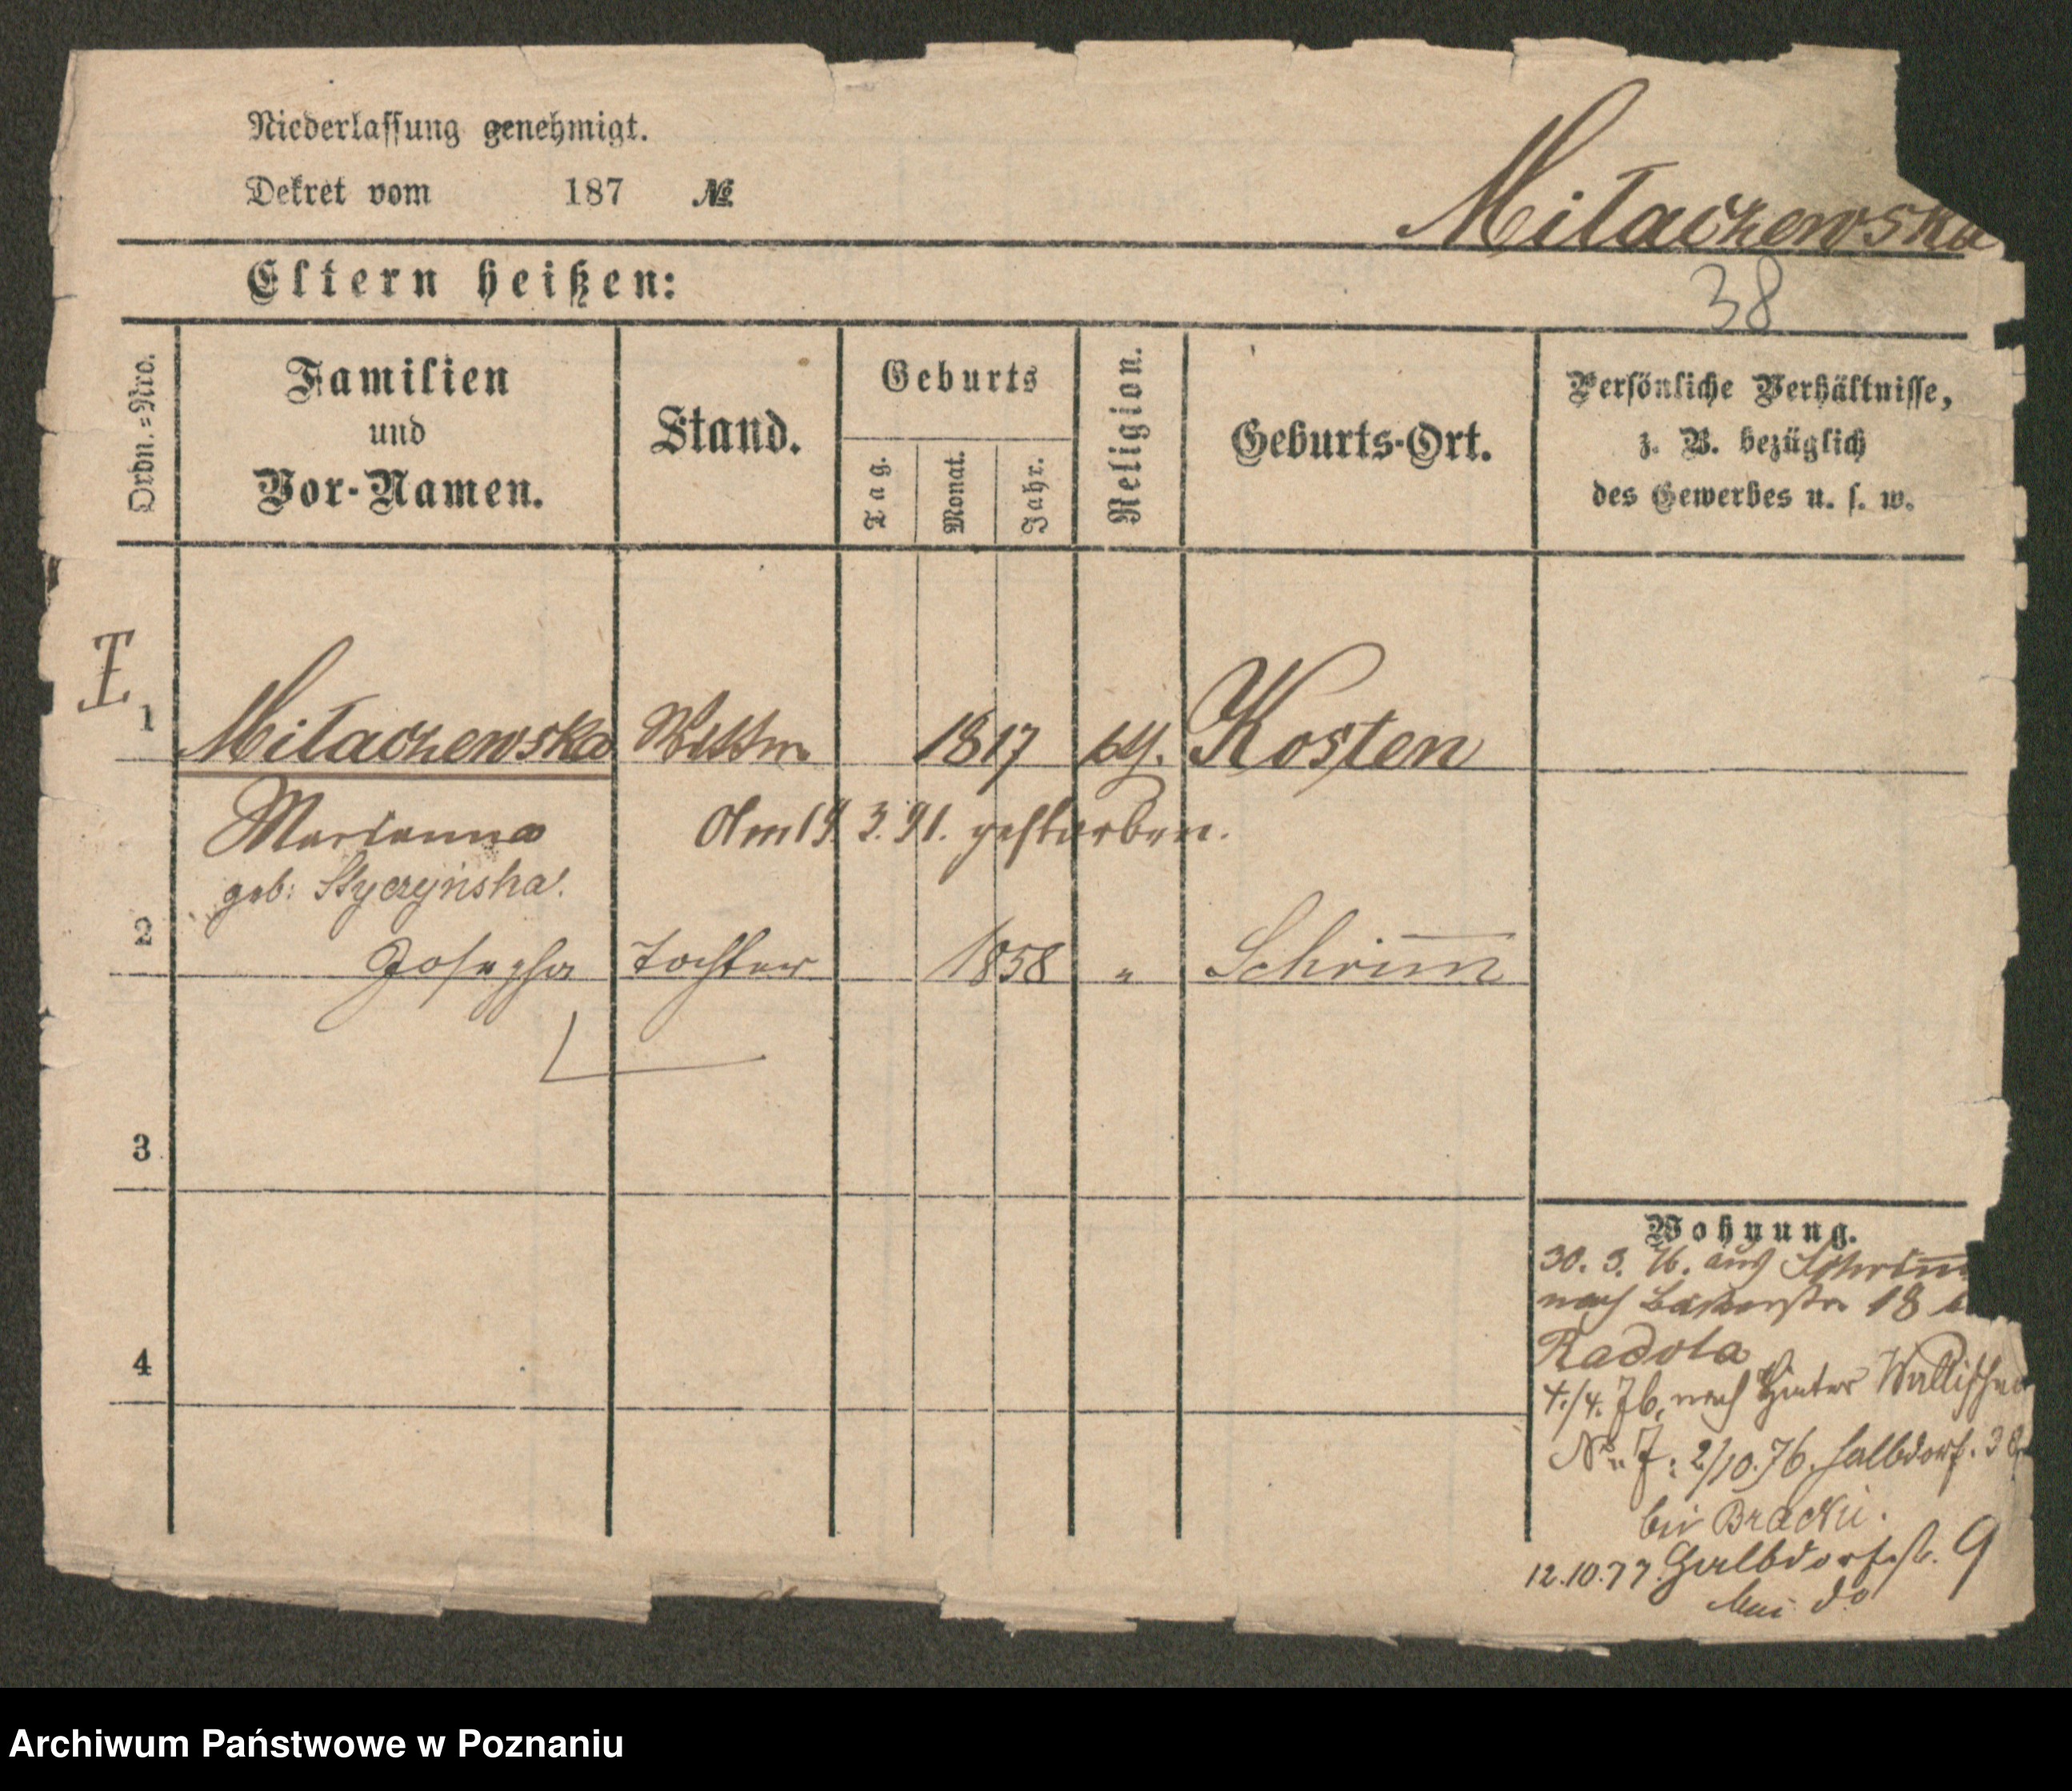 Niederlassung genehmigt.
Dekret vom 187 №
Miłaczewska
Eltern heißen:
38
Ordn.=Nro.
Familien
und
Vor-Namen.
Stand.
Geburts
Tag.
Monat.
Jahr.
Religion.
Geburts-Ort.
Persönliche Verhältnisse,
z. B. bezüglich
des Gewerbes u. s. w.
I
1 Miłaczewska Wittwe 1817 kth. Kosten
Marianna Am 19. 3. 91. gestorben.
geb: Styczyńska
2 Josepha Tochter 1858 " Schrim̅
3
4
Wohnung.
30. 3. 76. aus Schrim̅
nach 18
Radola
4./4. 76. nach Hinter Wallischei
No 7: 2/10. 76. Halbdorf. 3
bei Bracki.
12.10.77. Halbdorfstr. 9
bei do
Archiwum Państwowe w Poznaniu